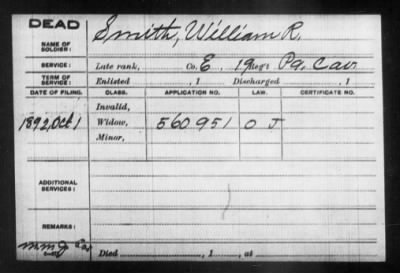 DEAD
NAME OF SOLDIER: Smith, William R.
SERVICE: Late rank, Co. E, 19 Reg't Pa. Cav.
TERM OF SERVICE: Enlisted , 1 Discharged , 1
DATE OF FILING. CLASS. APPLICATION NO. LAW. CERTIFICATE NO.
Invalid,
1892, Oct 1 Widow, 560951 O J
Minor,
ADDITIONAL SERVICES:
REMARKS:
Died , 1 , at